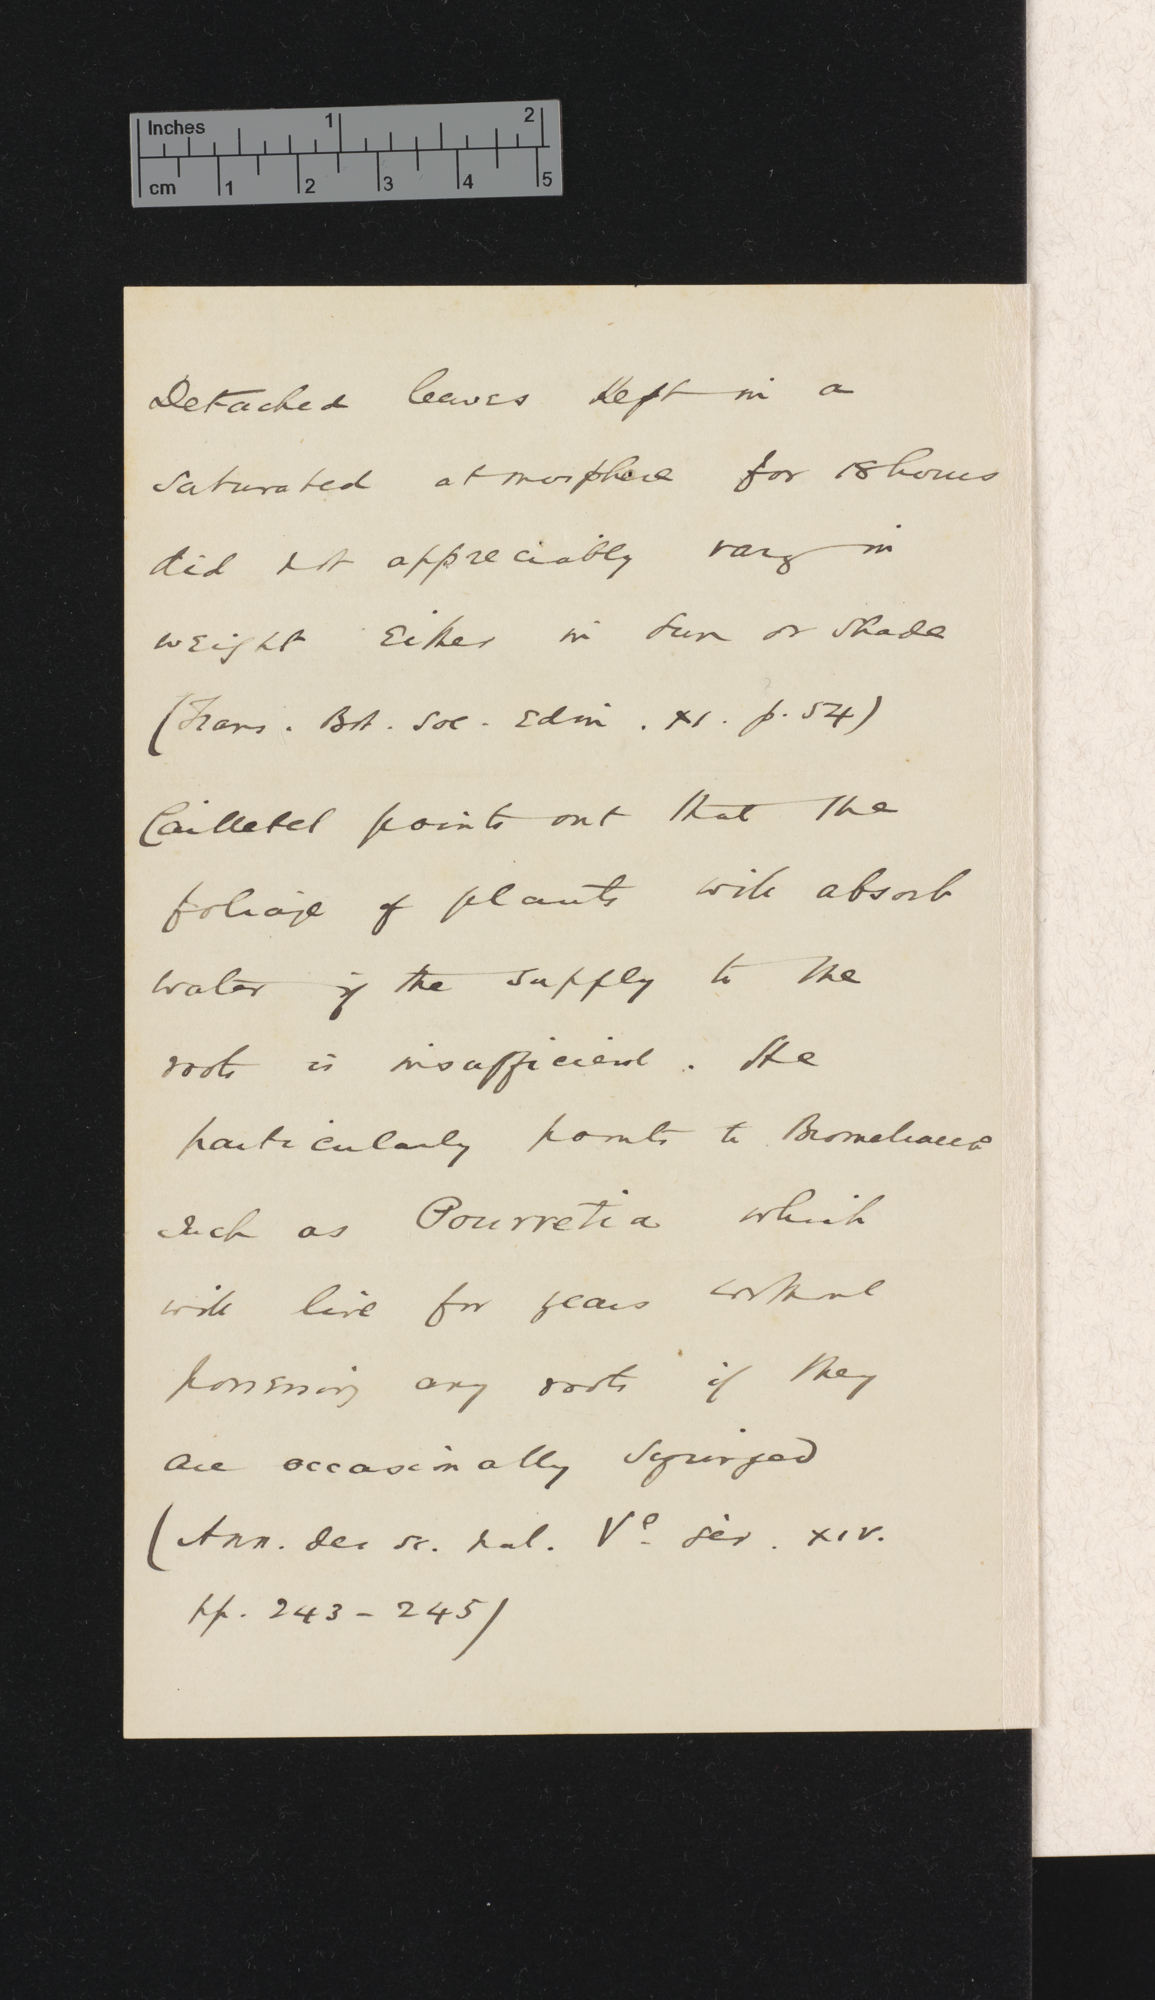 Inches 1 2
cm 1 2 3 4 5
Detached leaves kept in a
saturated atmosphere for 18 hours
did not appreciably vary in
weight either in sun or shade
(Trans. Bot. Soc. Edin. XI. p. 54)
Cailletet points out that the
foliage of plants will absorb
water if the supply to the
roots is insufficient. He
particularly points to Bromeliaceæ
such as Pourretia which
will live for years without
possessing any roots if they
are occasionally syringed
(Ann. des sc. nat. Ve. sér. XIV.
pp. 243-245)